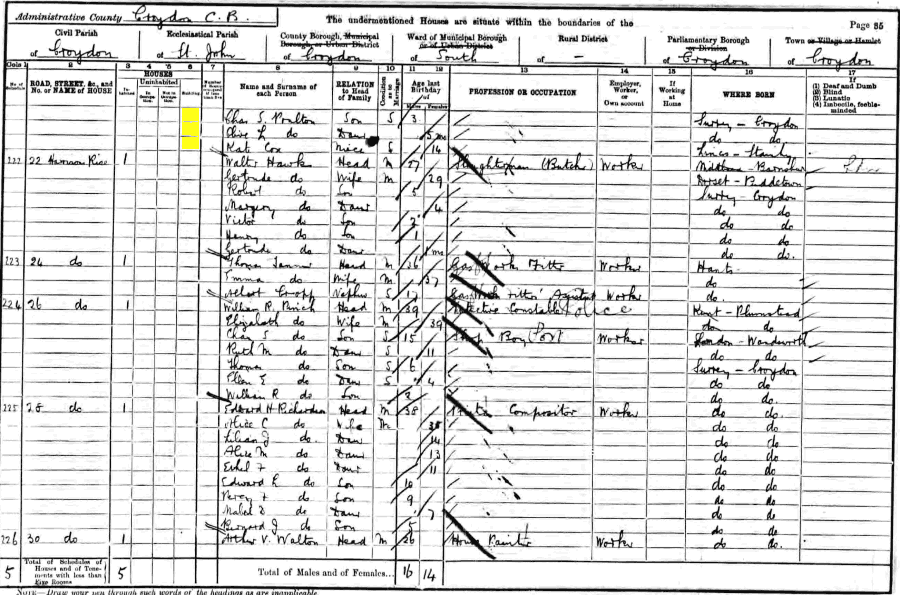 Administrative County Croydon C.B. The undermentioned Houses are situate within the boundaries of the Page 35
Civil Parish Ecclesiastical Parish County Borough, Municipal Borough, or Urban District Ward of Municipal Borough or of Urban District Rural District Parliamentary Borough or Division Town or Village or Hamlet
of Croydon of St. John of Croydon of South of — of Croydon of Croydon
Cols 1 2 3 4 5 6 7 8 9 10 11 12 13 14 15 16 17
No. of Schedule ROAD, STREET, &c., and No. or NAME of HOUSE HOUSES In- habited Uninhabited In Occupation Not in Occupation Building Name and Surname of each Person RELATION to Head of Family Condition as to Marriage Age last Birthday of Males Females PROFESSION OR OCCUPATION Employer, Worker, or Own account If Working at Home WHERE BORN (1) Deaf and Dumb (2) Blind (3) Lunatic (4) Imbecile, feeble-minded
Chas S. Poulton Son S 3 Surrey - Croydon
Olive L do Daur 5 ms do do
Kate Cox Niece S 14 Lincs -
222 22 1 Walter Hawks Head M 27 Worker
Gertrude do Wife M 29 Dorset -
Robert do Son 5 Surrey - Croydon
Margery do Daur 4 do do
Victor do Son 2 do do
Henry do Son 1 do do
Gertrude do Daur 1 ms do do.
223 24 do 1 Thomas Head M 36 Gas Work Fitter Worker Hants
Emma do Wife M 37 do
Albert Cropp Nephew S 17 Gas Work Fitters' Assistant Worker do
224 26 do 1 William R. Head M 39 Detective Constable Police Kent - Plumstead
Elizabeth do Wife M 39 do do
Chas S do Son S 15 Shop Boy Worker London - Wandsworth
Ruth M do Daur S 11 do do
Thomas do Son S 6 Surrey - Croydon
Ellen E do Daur S 4 do do
William R do Son 2 do do.
225 28 do 1 Edward H Richardson Head M 38 Compositor Worker do do
Alice C do Wife M 38 do do
Lilian J do Daur 14 do do
Alice M do Daur 13 do do
Ethel F do Daur 11 do do
Edward L do Son 10 do do
Percy F do Son 9 do do
Mabel D do Daur 7 do do
Bernard J do Son 5 do do
226 30 do 1 Arthur V. Walton Head M 26 House Painter Worker do do.
5 Total of Schedules of Houses and of Tenements with less than Five Rooms 5 Total of Males and of Females... 16 14
NOTE—Draw your pen through such words of the headings as are inapplicable